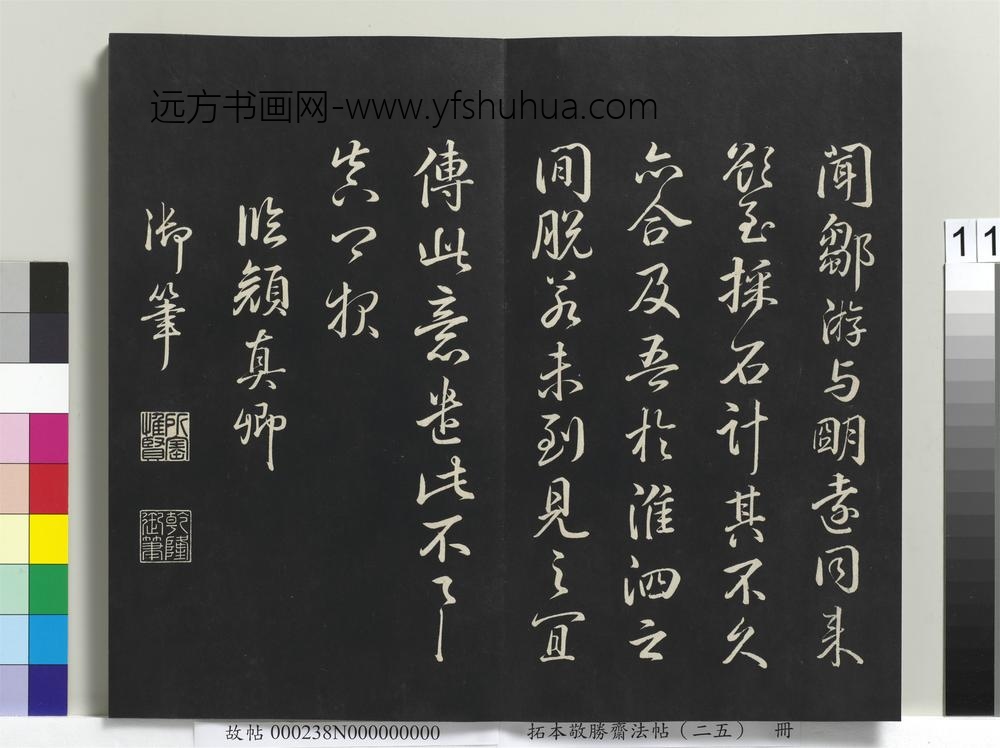 远方书画网-www.yfshuhua.com
聞鄒游与明遠同来
欲至採石計其不久
亦合及吾於淮泗之
間脱若未到見之宜
傳此意遣此不
真卿報
臨顔真卿
御筆
所寶惟賢
乾隆御筆
11
故帖 000238N000000000
拓本敬勝齋法帖(二五) 冊